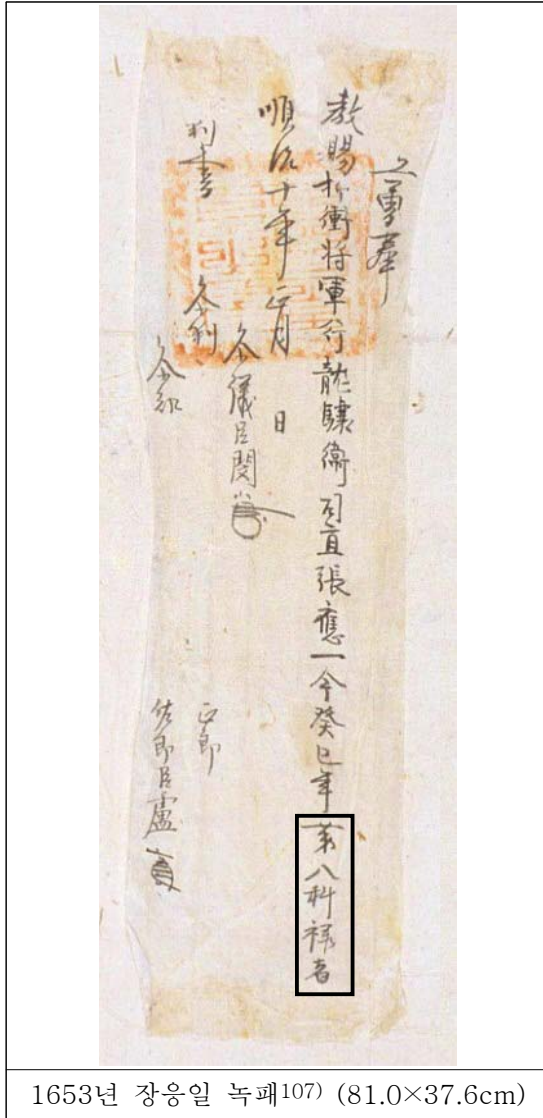 兵曹奉
教賜折衝將軍行龍驤衛司直張應一今癸巳年第八科祿者
順治十年正月 日
判書
參判
參議臣閔
參知
正郎
佐郎臣盧
1653년 장응일 녹패107) (81.0×37.6cm)